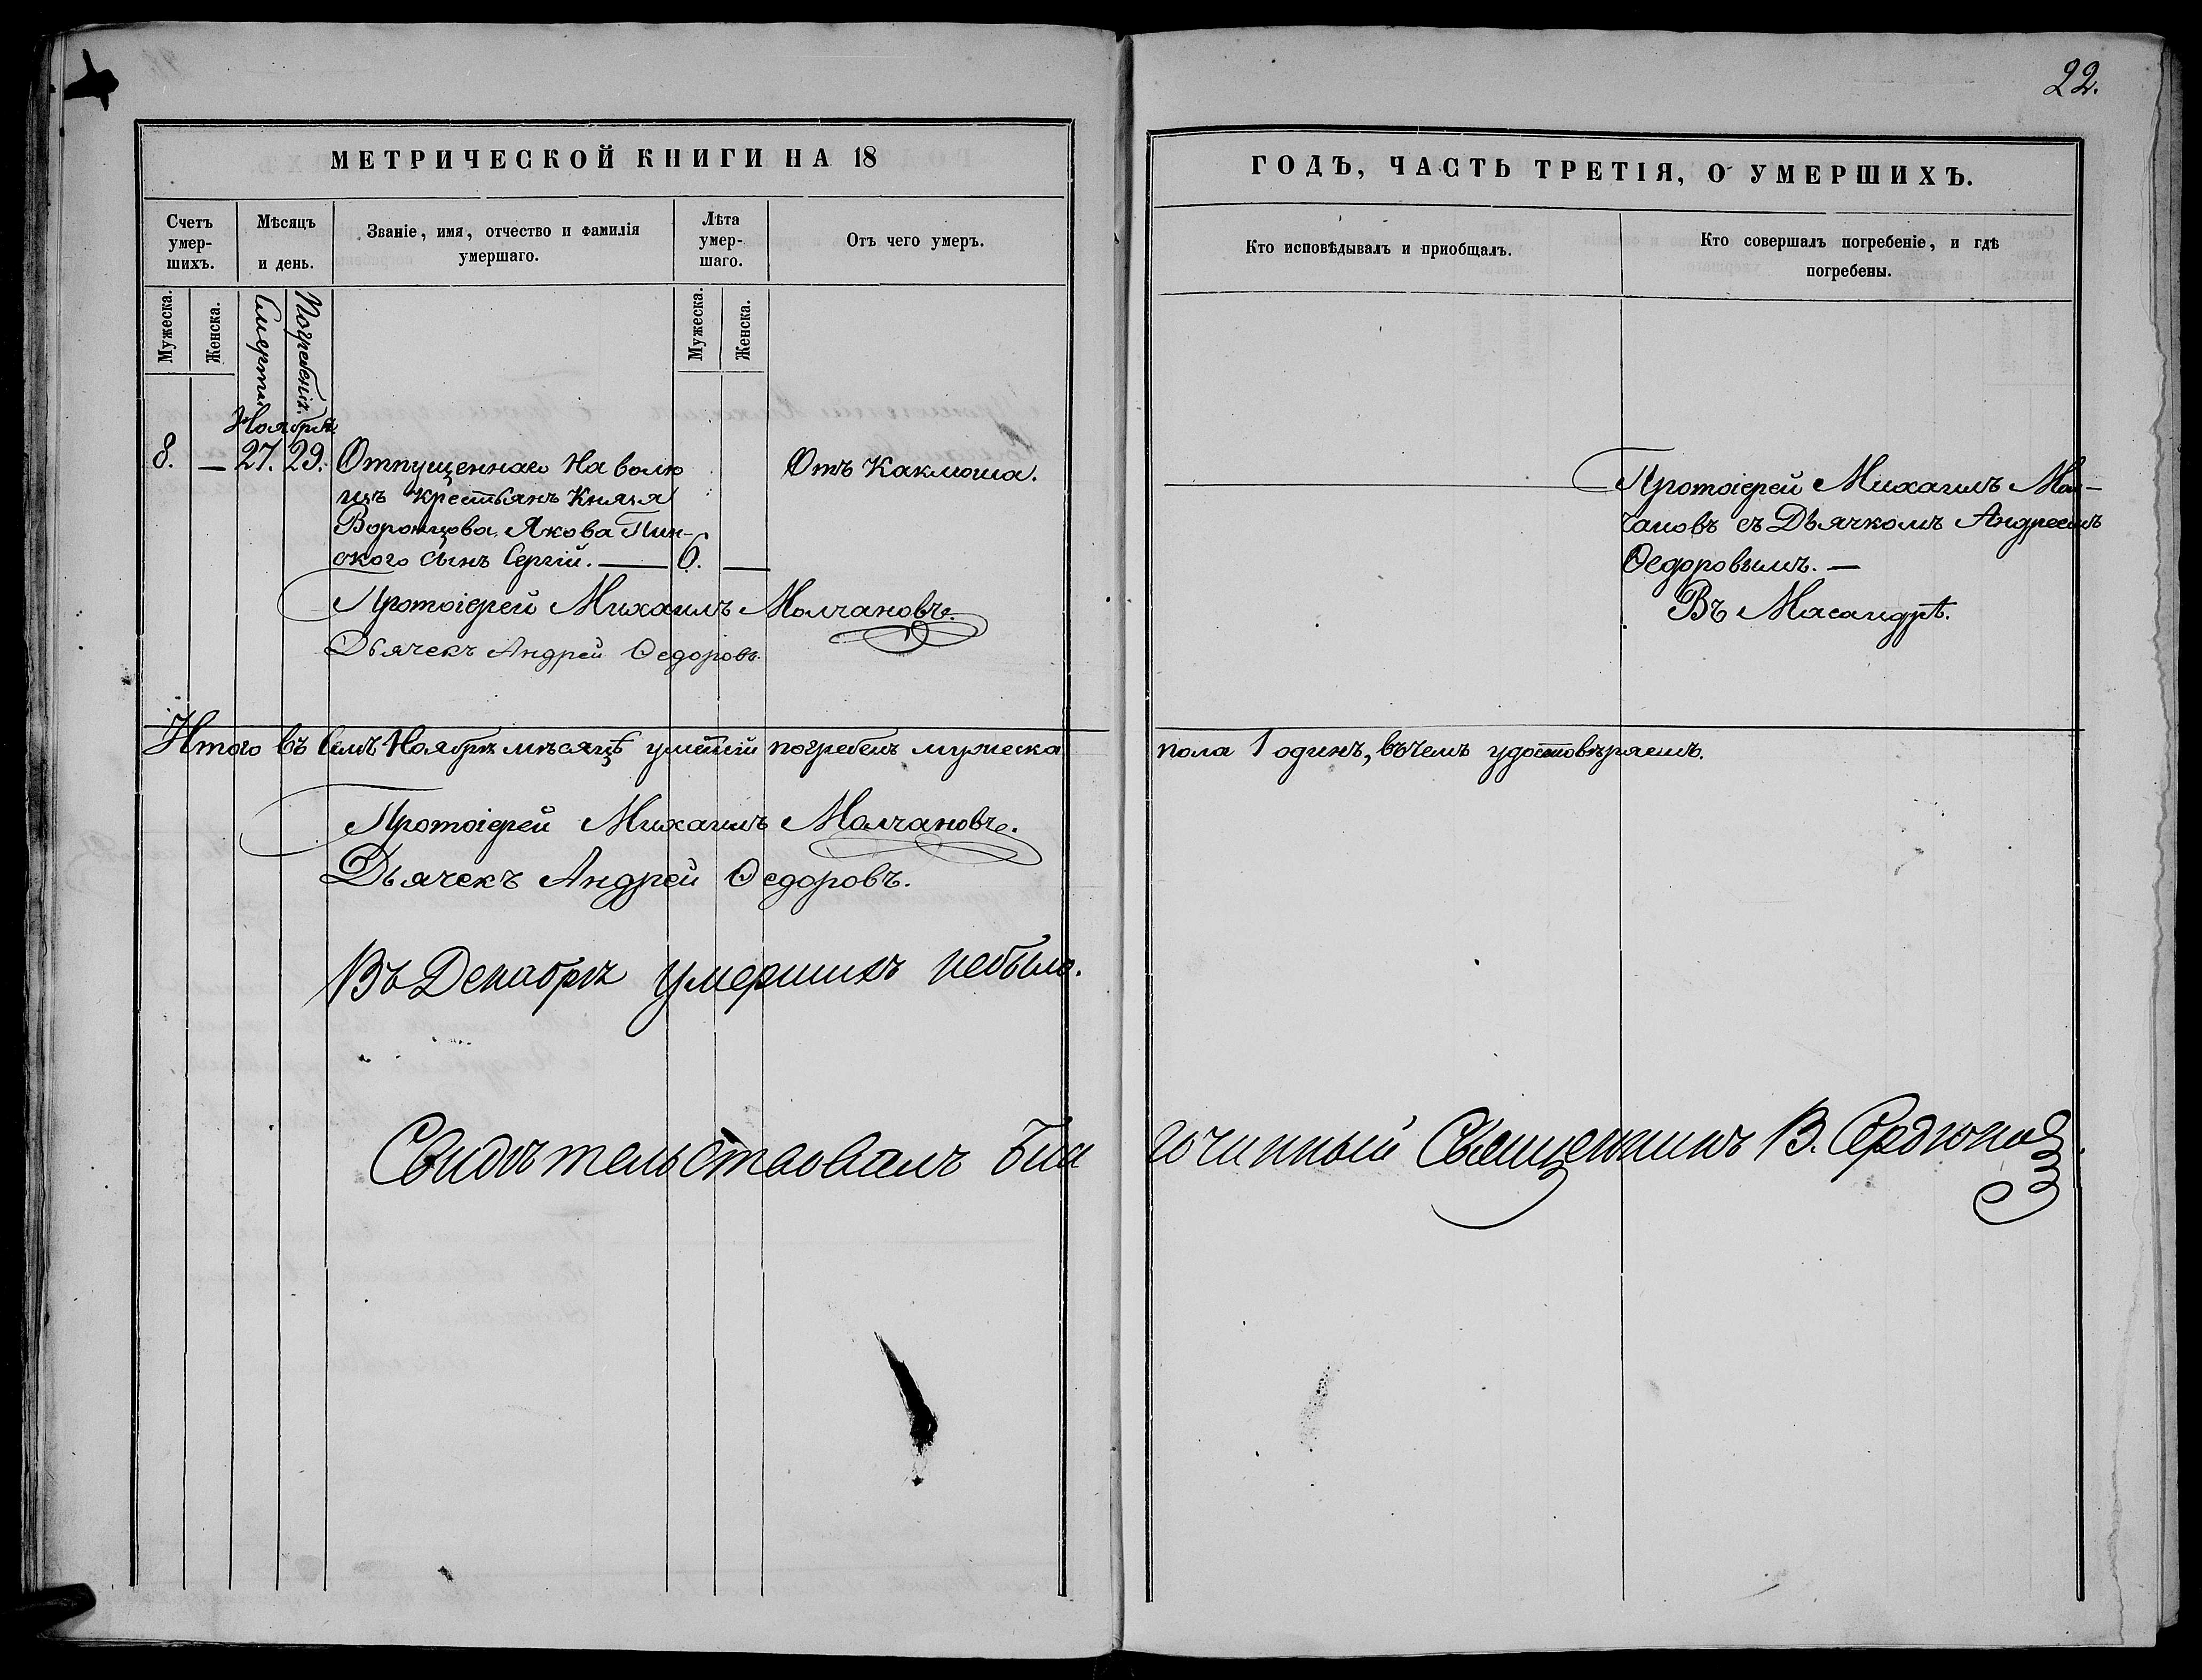 22.
МЕТРИЧЕСКОЙ КНИГИ НА 18
ГОДЪ, ЧАСТЬ ТРЕТІЯ, О УМЕРШИХЪ.
Счетъ умер-
шихъ.
Мѣсяцъ
и день.
Званіе, имя, отчество и фамилія
умершаго.
Лѣта
умер-
шаго.
Отъ чего умеръ.
Кто исповѣдывалъ и приобщалъ.
Кто совершалъ погребеніе, и гдѣ
погребены.
Мужеска.
Женска.
Смерти.
Погребенія.
Мужеска.
Женска.
Ноября.
8. — 27. 29. Отпущеннаго на волю
изъ крестьянъ Князя
Воронцова, Якова Пин-
скаго сынъ Сергій. — 6. —
Отъ Каклюша.
Протоіерей Михаилъ Мол-
чановъ съ Дьячкомъ Андреемъ
Ѳедоровымъ. —
Въ Масандрѣ.
Протоіерей Михаилъ Молчановъ.
Дьячекъ Андрей Ѳедоровъ.
Итого въ семъ Ноябрѣ мѣсяцѣ умершій погребенъ мужеска
пола 1 одинъ, въ чемъ удостовѣряемъ.
Протоіерей Михаилъ Молчановъ.
Дьячекъ Андрей Ѳедоровъ.
Въ Декабрѣ умершихъ небыло.
Свидѣтельствовалъ Бла
гочинный Священникъ В. Сердюковъ